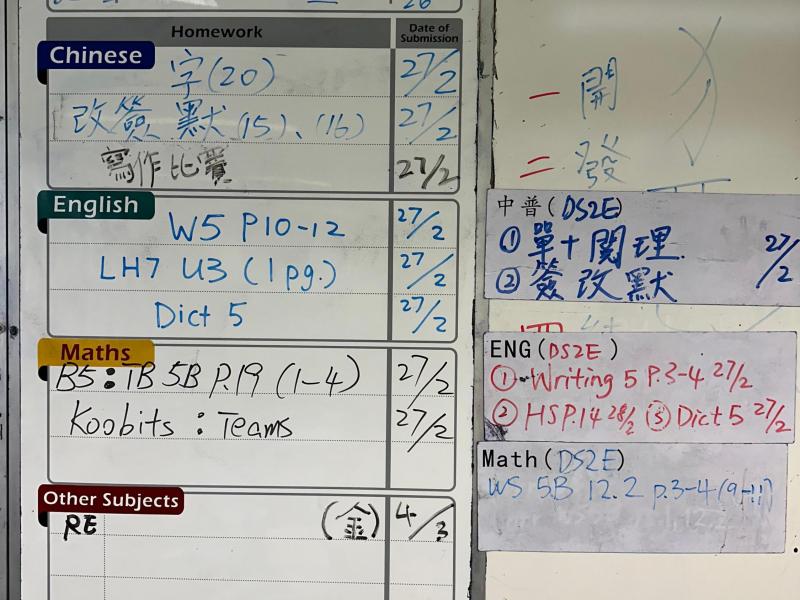 26
Homework
Date of Submission
Chinese
字(20) 27/2
改簽 默(15)、(16) 27/2
寫作比賽 27/2
English
W5 P10-12 27/2
LH7 U3 (1pg.) 27/2
Dict 5 27/2
Maths
B5: TB 5B P.19 (1-4) 27/2
Koobits : Teams 27/2
Other Subjects
RE (金) 4/3
一 開
二 發
中普(DS2E)
① 單十閱理. 27/2
② 簽改默
ENG(DS2E)
① Writing 5 P.3-4 27/2
② HSP.14 28/2 ③ Dict 5 27/2
Math(DS2E)
WS 5B 12.2 p.3-4 (9-11)